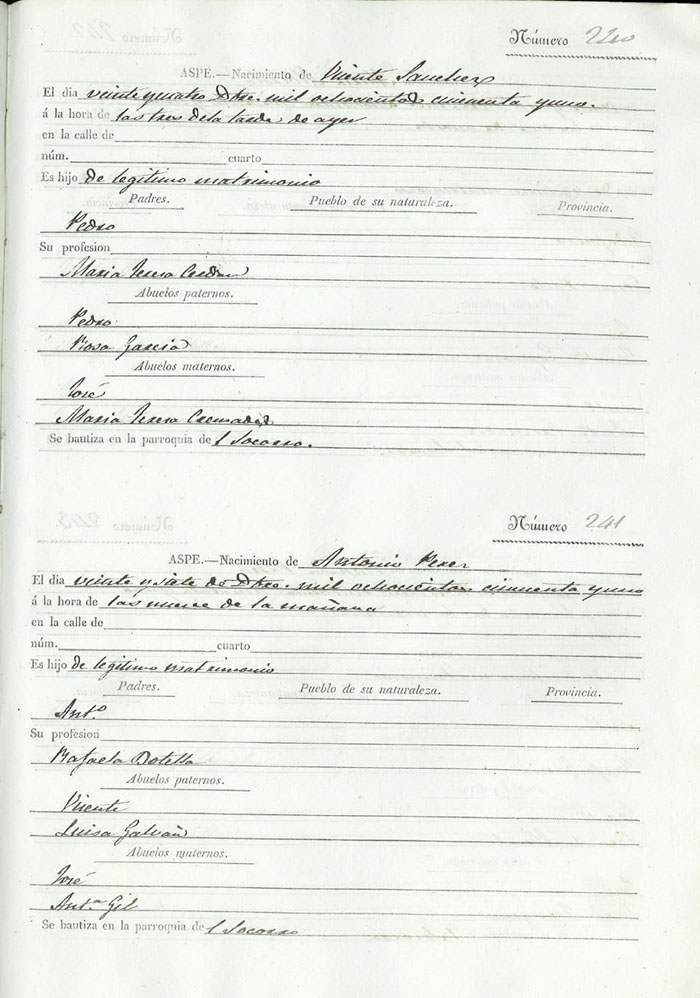 Número 240
ASPE.—Nacimiento de Vicente Sanchez
El dia veinte y cuatro Dbre. mil ochocientos cincuenta y uno.
á la hora de las tres de la tarde de ayer
en la calle de
núm. cuarto
Es hijo de legitimo matrimonio
Padres. Pueblo de su naturaleza. Provincia.
Pedro
Su profesion
Maria Teresa Cerdan
Abuelos paternos.
Pedro
Rosa Garcia
Abuelos maternos.
José
Maria Teresa Cremades
Se bautiza en la parroquia de l Socorro.
Número 241
ASPE.—Nacimiento de Antonio Perez
El dia veinte y siete de Dbre. mil ochocientos cincuenta y uno
á la hora de las nueve de la mañana
en la calle de
núm. cuarto
Es hijo de legitimo matrimonio
Padres. Pueblo de su naturaleza. Provincia.
Ant.º
Su profesion
Rafaela Botella
Abuelos paternos.
Vicente
Luisa Galvañ
Abuelos maternos.
José
Ant.ª Gil
Se bautiza en la parroquia de l Socorro